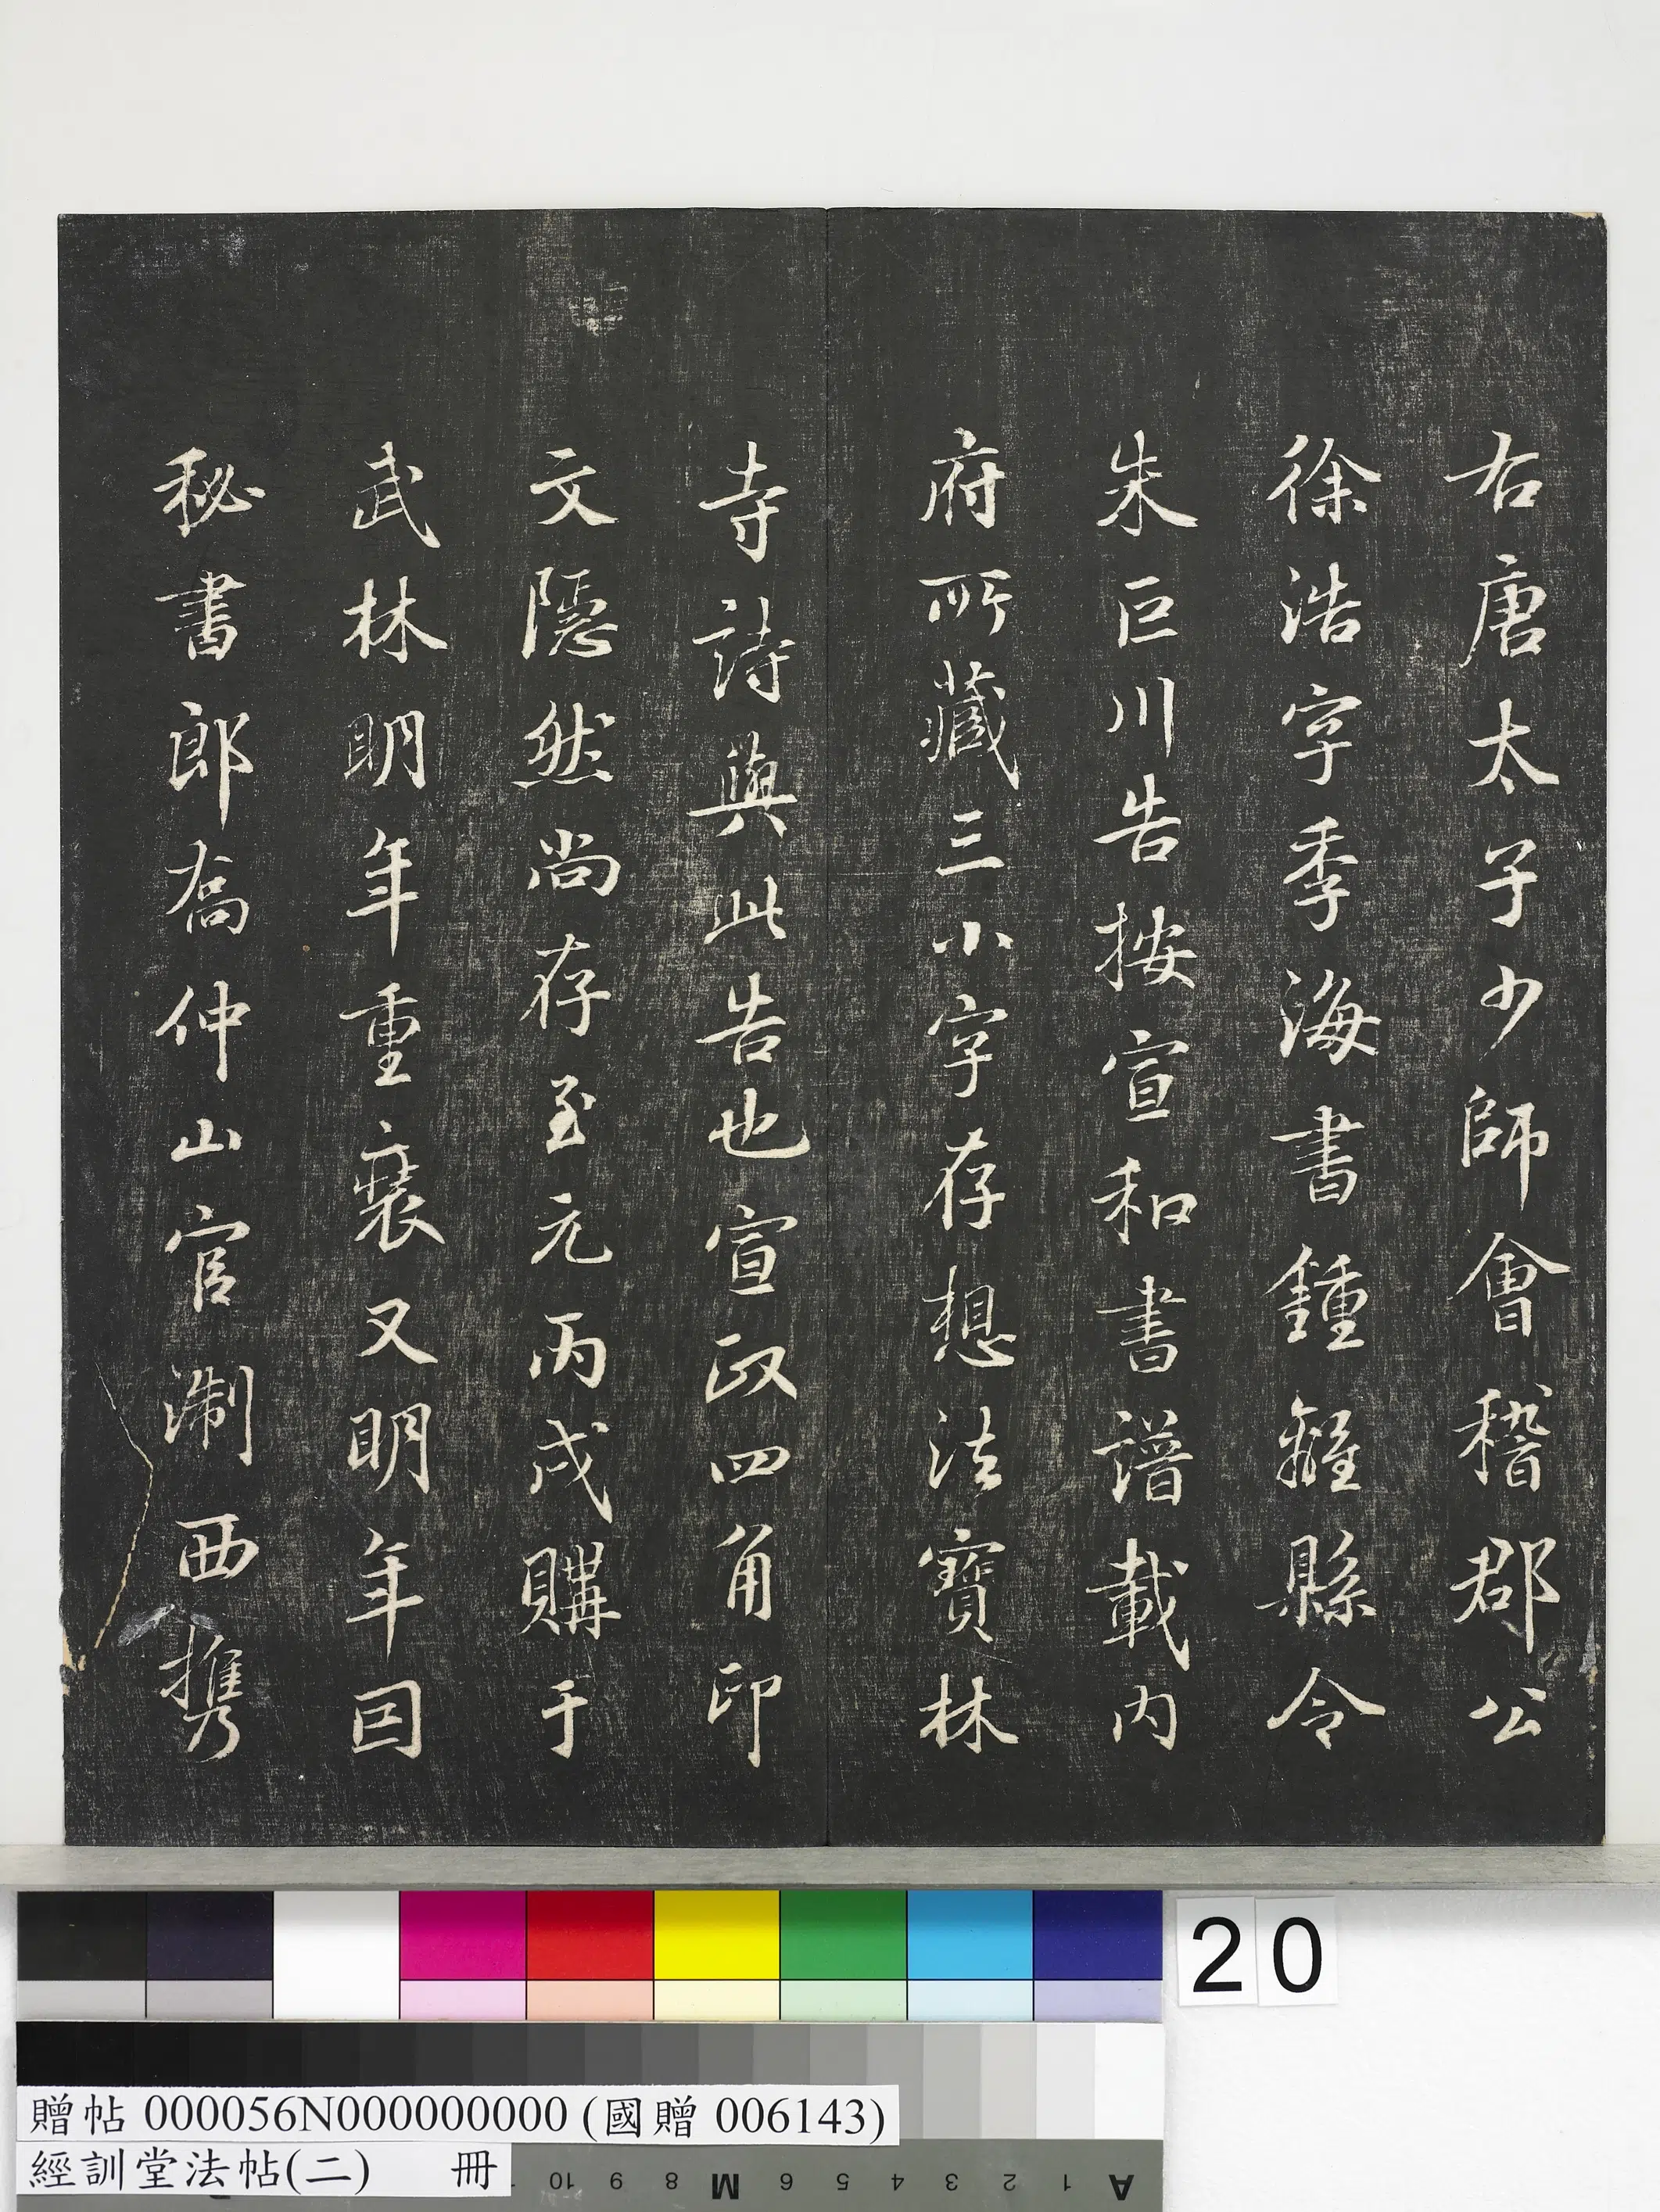 右唐太子少師會稽郡公
徐浩字季海書鍾離縣令
朱巨川告按宣和書譜載內
府所藏三小字存想法寶林
寺詩與此告也宣政四角印
文隱然尚存至元丙戌購于
武林明年重裝又明年因
秘書郎喬仲山官制西携
20
贈帖 000056N000000000 (國贈 006143)
經訓堂法帖(二) 冊
10 9 8 M 6 5 4 3 2 1 A